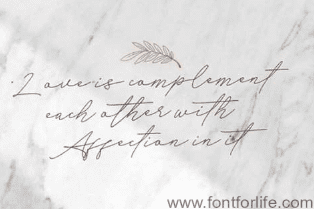 Love is complement
each other with
Affection in it
www.fontforlife.com